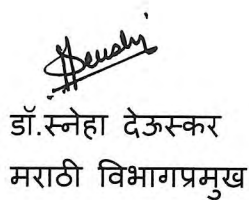 डॉ.स्नेहा देऊस्कर
मराठी विभागप्रमुख